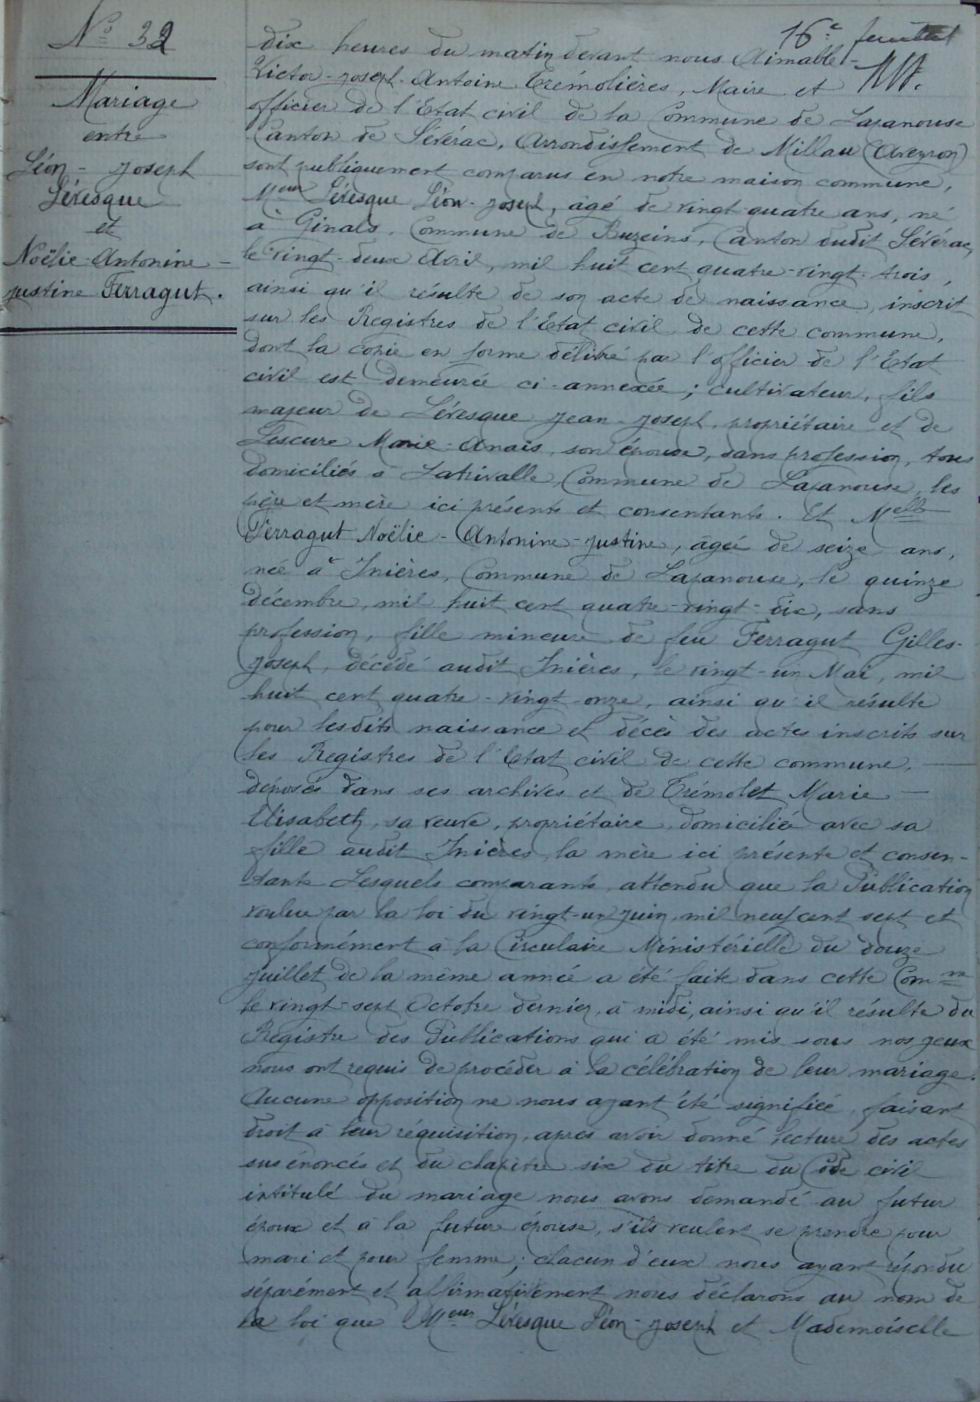 16e feuillet
N° 32
Mariage
entre
Léon-Joseph
Lévesque
et
Noëlie-Antonine-
Justine Ferragut.
dix heures du matin devant nous Aimable-
Victor-Joseph-Antoine Trémolières, Maire et
officier de l'Etat civil de la Commune de Lapanouse
Canton de Sévérac, Arrondissement de Millau (Aveyron)
sont publiquement comparus en notre maison commune,
Mour Lévesque Léon-Joseph, âgé de vingt-quatre ans, né
à Ginals, Commune de Buzeins, Canton dudit Sévérac,
le vingt-deux Avril, mil huit cent quatre-vingt-trois,
ainsi qu'il résulte de son acte de naissance, inscrit
sur les Registres de l'Etat civil de cette commune,
dont la copie en forme délivré par l'officier de l'Etat
civil est demeurée ci-annexée; cultivateur, fils
majeur de Lévesque Jean-Joseph, propriétaire et de
Lescure Marie-Anaïs, son épouse, sans profession, tous
domiciliés à Latrivalle, Commune de Lapanouse, les
père et mère ici présents et consentants. Et Melle
Ferragut Noëlie-Antonine-Justine, âgée de seize ans,
née à Inières, Commune de Lapanouse, le quinze
décembre, mil huit cent quatre-vingt-dix, sans
profession, fille mineure de feu Ferragut Gilles-
Joseph, décédé audit Inières, le vingt-un Mai, mil
huit cent quatre-vingt-onze, ainsi qu'il résulte
pour lesdits naissance et décès des actes inscrits sur
les Registres de l'Etat civil de cette commune,
déposés dans ses archives et de Trémolet Marie-
Elisabeth, sa veuve, propriétaire, domiciliée avec sa
fille audit Inières, la mère ici présente et consen-
tante Lesquels comparants, attendu que la Publication
voulue par la loi du vingt-un juin, mil neuf cent sept et
conformément à la Circulaire Ministérielle du douze
juillet de la même année a été faite dans cette Comne
le vingt-sept Octobre dernier, à midi, ainsi qu'il résulte du
Registre des Publications qui a été mis sous nos yeux
nous ont requis de procéder à la célébration de leur mariage.
Aucune opposition ne nous ayant été signifiée, faisant
droit à leur réquisition, après avoir donné lecture des actes
sus énoncés et du chapitre six du titre du Code civil
intitulé du mariage nous avons demandé au futur
époux et à la future épouse, s'ils veulent se prendre pour
mari et pour femme; chacun d'eux nous ayant répondu
séparément et affirmativement nous déclarons au nom de
la loi que Mour Lévesque Léon-Joseph et Mademoiselle